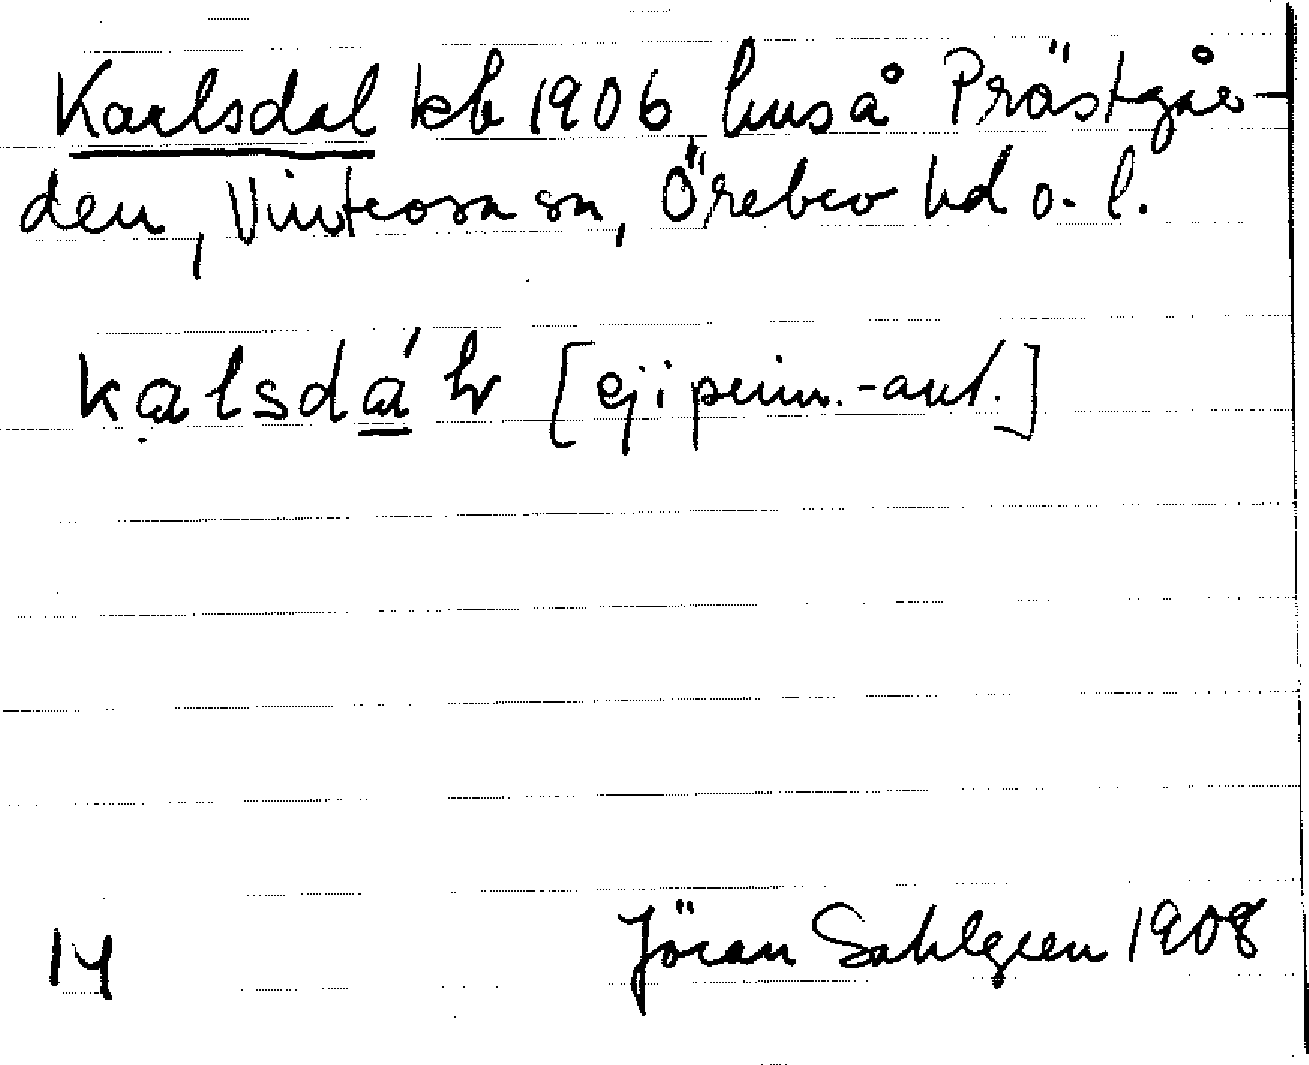 Karlsdal kb 1906 hus å Prästgår-
den, Vintrosa sn, Örebro hd o. l.
kalsdá l
[ej i prim.-ant.]
14 Jöran Sahlgren 1908